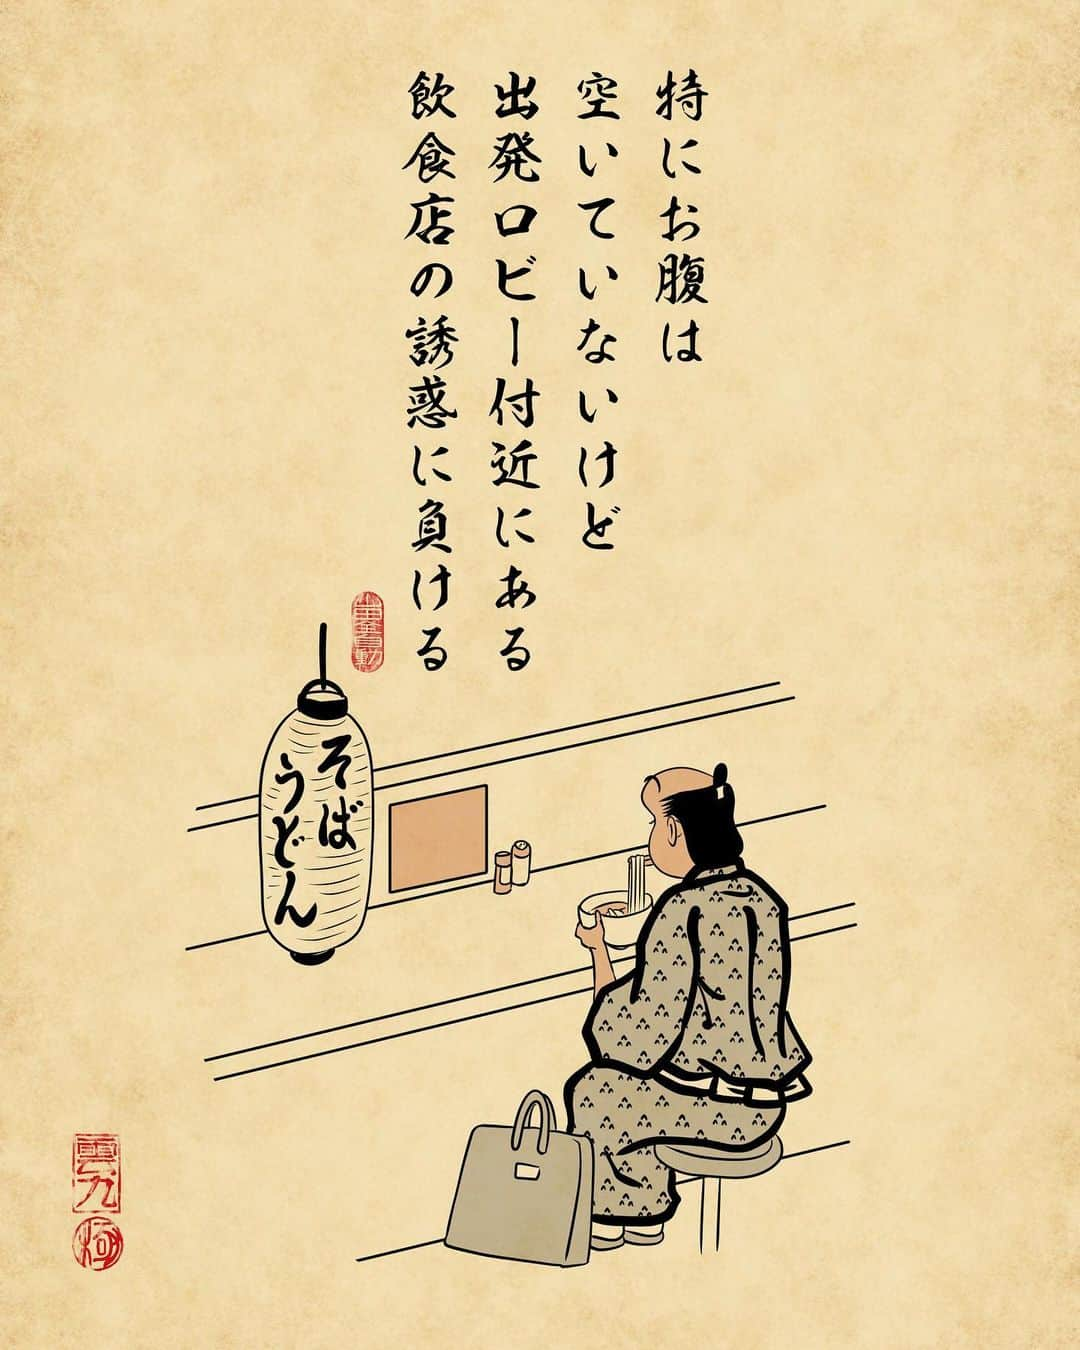 特にお腹は
空いていないけど
出発ロビー付近にある
飲食店の誘惑に負ける
そば
うどん